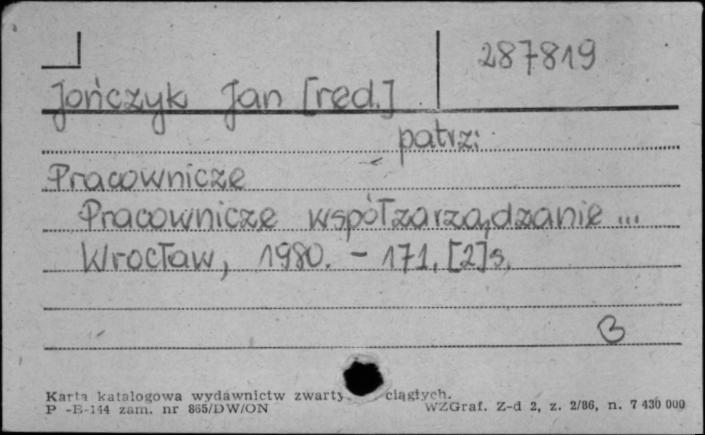 287819
Jończyk Jan [red.]
patrz:
Pracownicze
Pracownicze współzarządzanie ...
Wrocław, 1980. - 171, [2]s.
B
Karta katalogowa wydawnictw zwarty ciągłych.
P -B-144 zam. nr 865/DW/ON WZGraf. Z-d 2, z. 2/86, n. 7 430 000